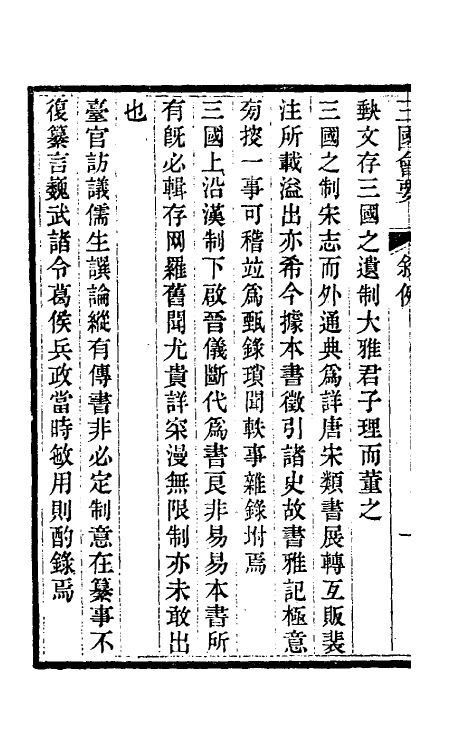 三國會要 敘例 一
缺文存三國之遺制大雅君子理而董之
三國之制宋志而外通典爲詳唐宋類書展轉互販裴
注所載溢出亦希今據本書徵引諸史故書雅記極意
匃挍一事可稽竝爲甄錄瑣聞軼事雜錄坿焉
三國上沿漢制下啟晉儀斷代爲書良非易易本書所
有旣必輯存网羅舊聞尤貴詳寀漫無限制亦未敢出
也
臺官訪議儒生譔論縱有傳書非必定制意在纂事不
復纂言魏武諸令葛侯兵政當時敏用則酌錄焉